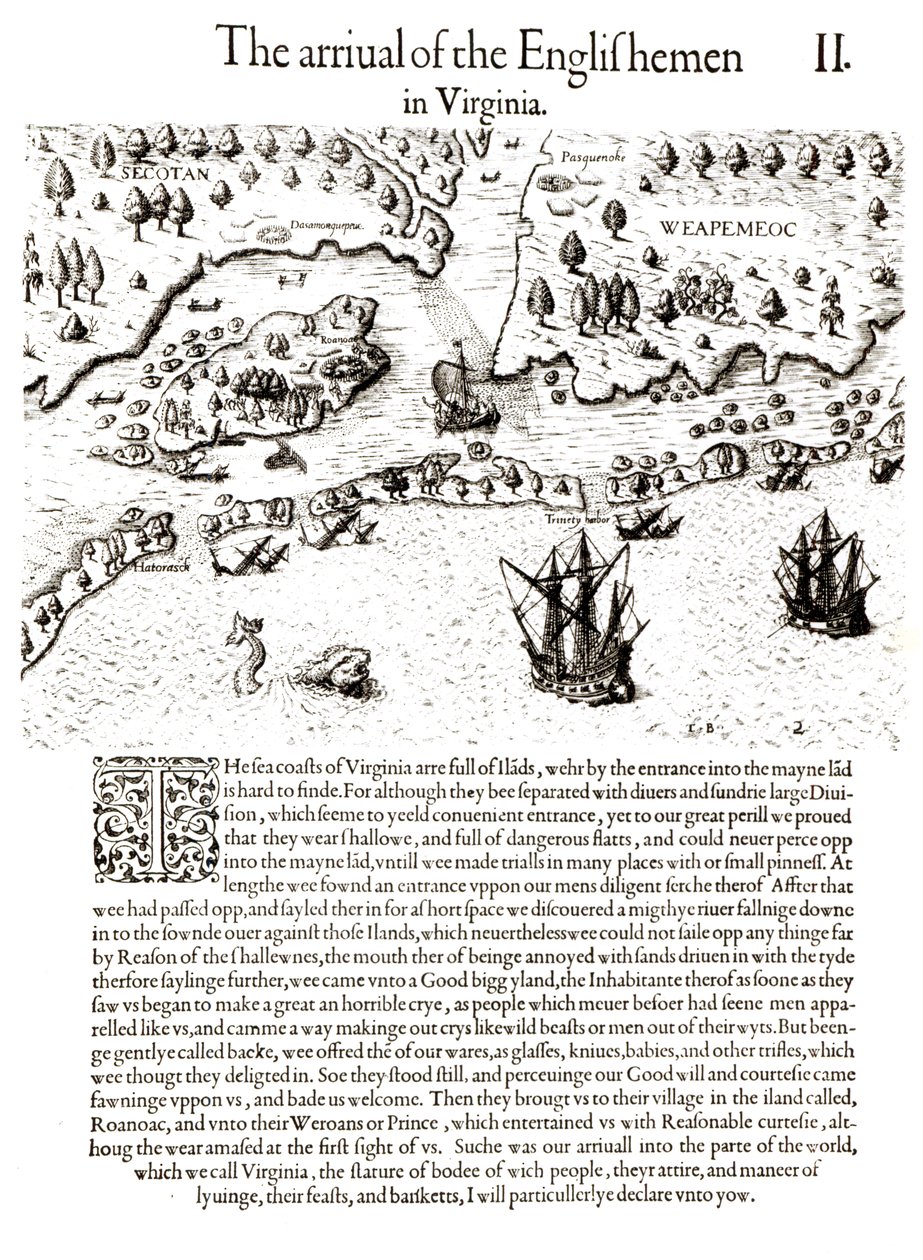 The arriual of the Engliſhemen II.
in Virginia.
Pasquenoke
SECOTAN
WEAPEMEOC
Dasamonquepeuc.
Roanoac
Trinety harbor
Hatorasck
T. B. 2
THe ſea coaſts of Virginia arre full of Ilãds, wehr by the entrance into the mayne lãd
is hard to finde. For although they bee ſeparated with diuers and ſundrie large Diui-
ſion, which ſeeme to yeeld conuenient entrance, yet to our great perill we proued
that they wear ſhallowe, and full of dangerous flatts, and could neuer perce opp
into the mayne lãd, vntill wee made trialls in many places with or ſmall pinneſſ. At
lengthe wee fownd an entrance vppon our mens diligent ſerche therof Affter that
wee had paſſed opp, and ſayled ther in for a ſhort ſpace we diſcouered a migthye riuer fallnige downe
in to the ſownde ouer againſt thoſe Ilands, which neuertheless wee could not ſaile opp any thinge far
by Reaſon of the ſhallewnes, the mouth ther of beinge annoyed with ſands driuen in with the tyde
therfore ſaylinge further, wee came vnto a Good bigg yland, the Inhabitante therof as ſoone as they
ſaw vs began to make a great an horrible crye, as people which meuer befoer had ſeene men appa-
relled like vs, and camme a way makinge out crys like wild beaſts or men out of their wyts. But been-
ge gentlye called backe, wee offred thẽ of our wares, as glaſſes, kniues, babies, and other trifles, which
wee thougt they deligted in. Soe they ſtood ſtill, and perceuinge our Good will and courteſie came
fawninge vppon vs, and bade us welcome. Then they brougt vs to their village in the iland called,
Roanoac, and vnto their Weroans or Prince, which entertained vs with Reaſonable curteſie, alt-
houg the wear amaſed at the firſt ſight of vs. Suche was our arriuall into the parte of the world,
which we call Virginia, the ſtature of bodee of wich people, theyr attire, and maneer of
lyuinge, their feaſts, and banketts, I will particullerlye declare vnto yow.